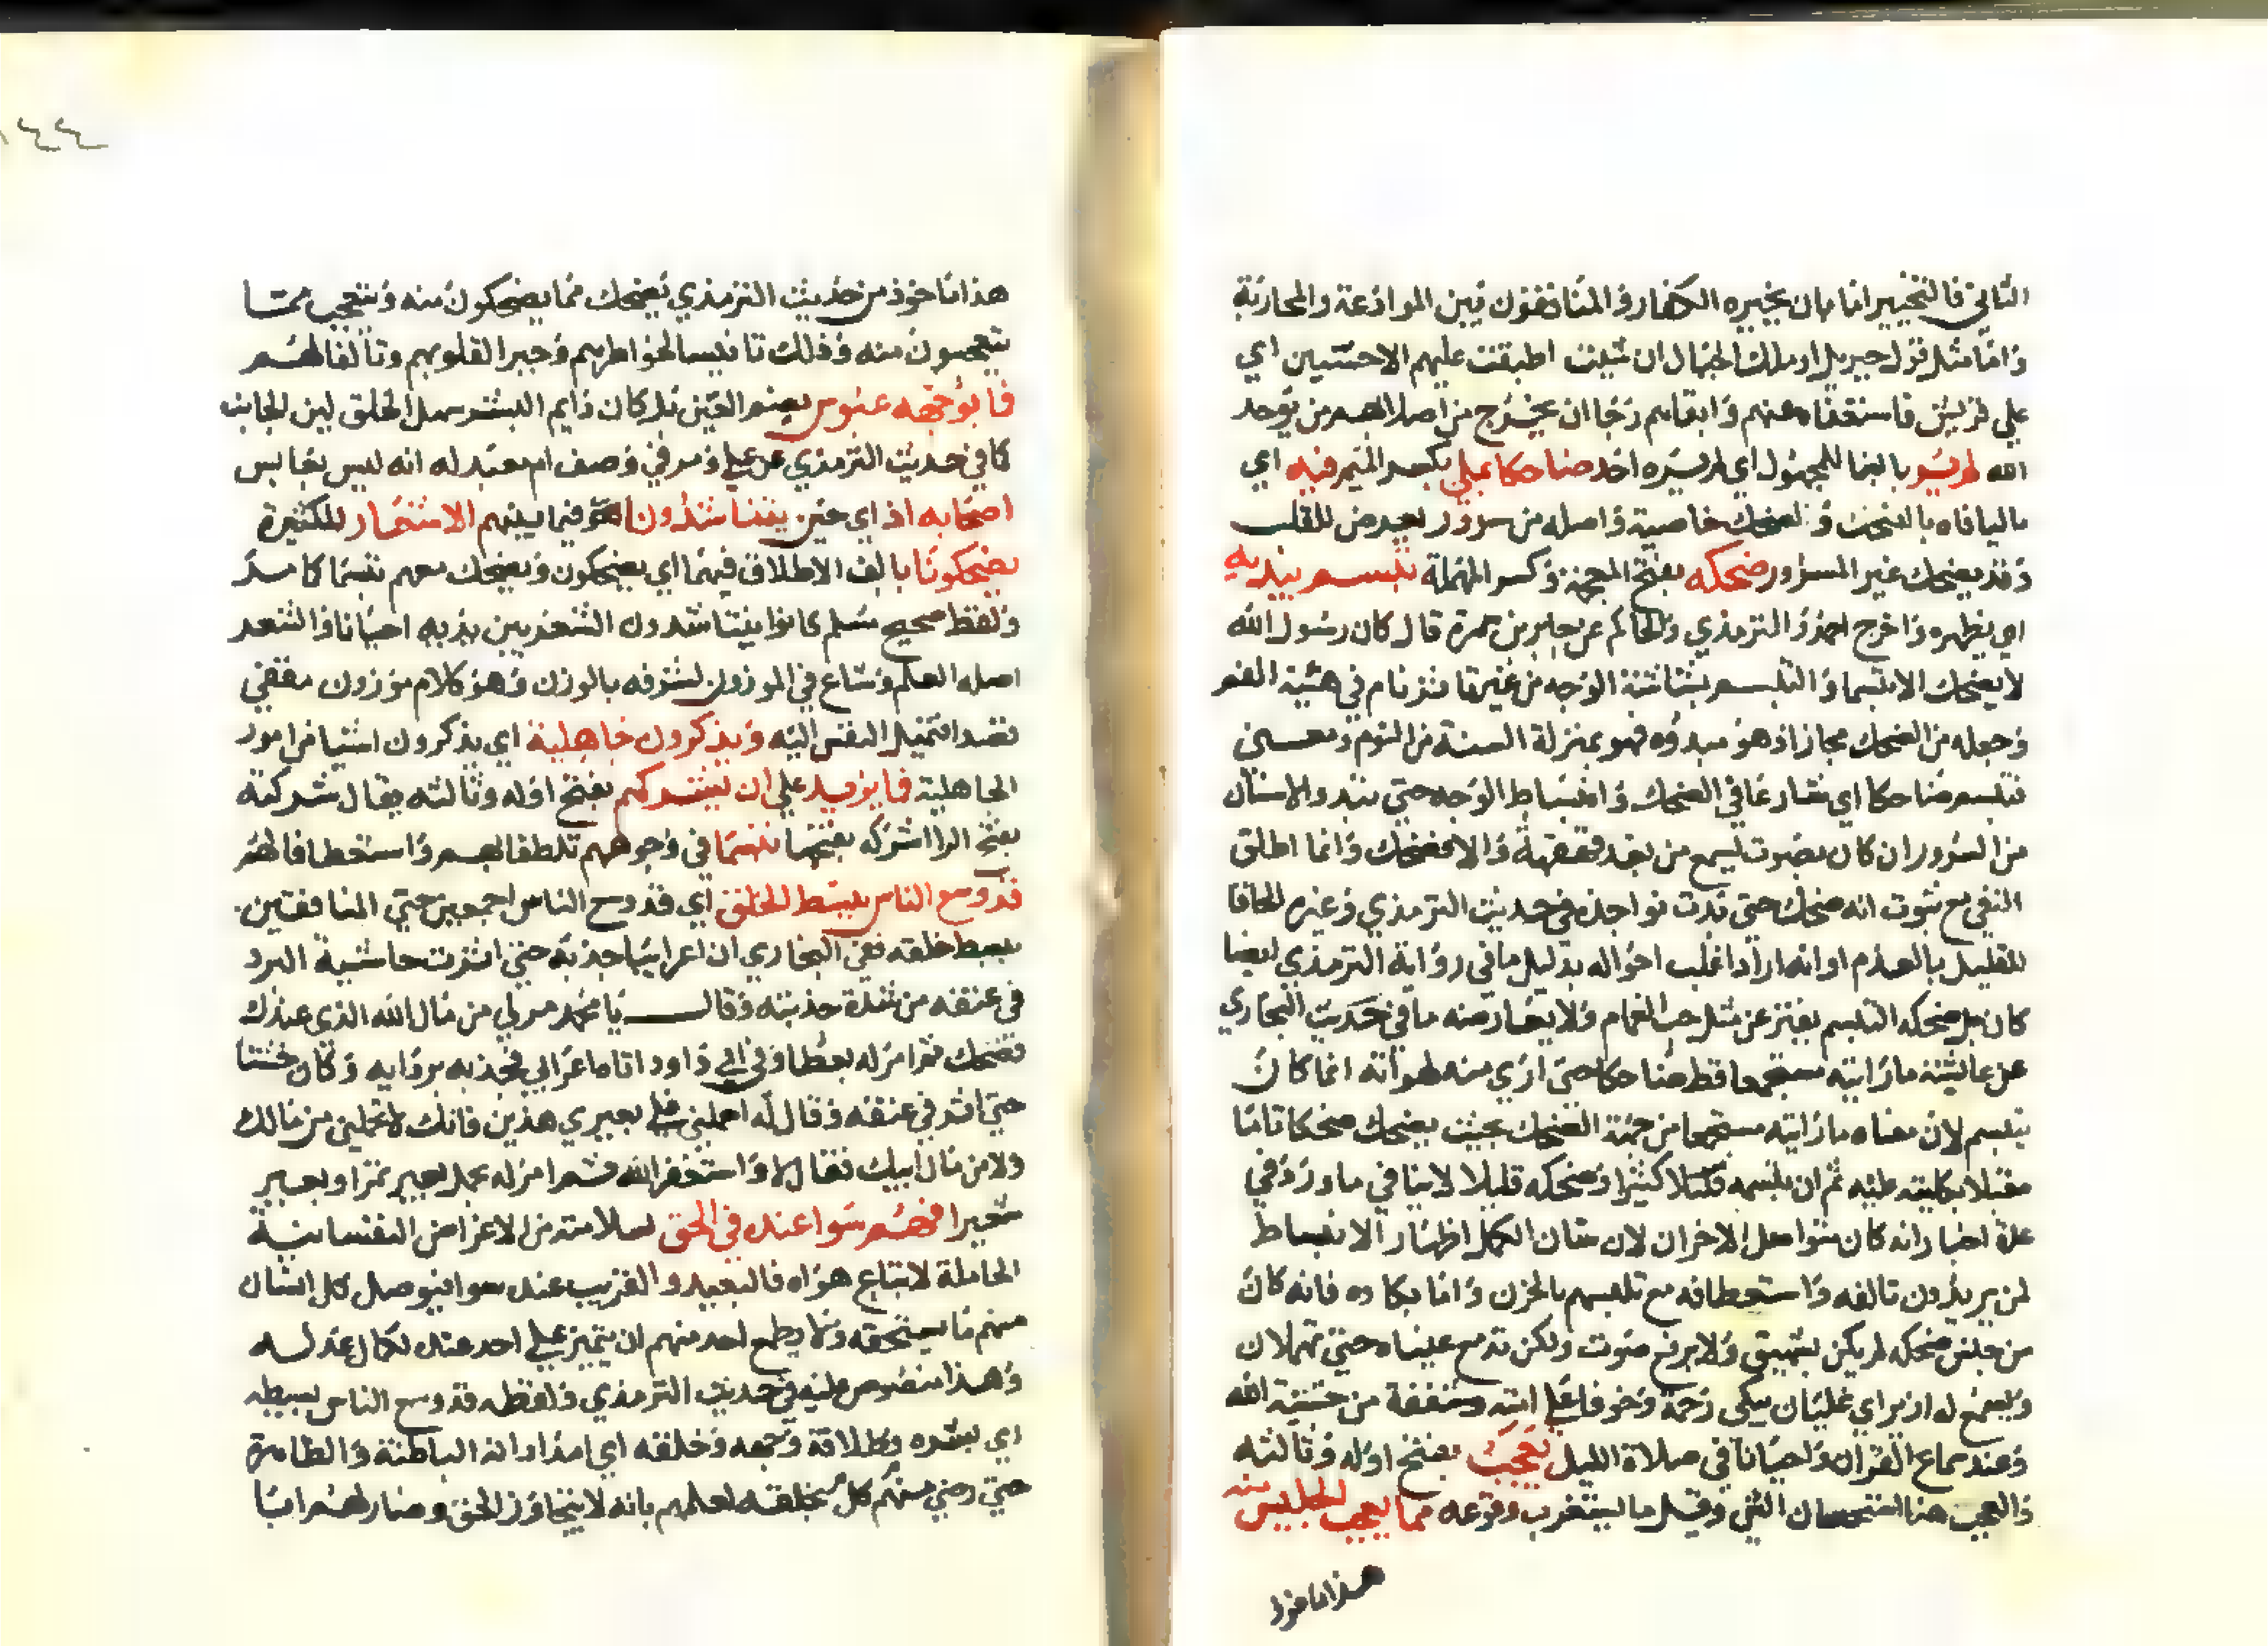 الثاني فالتخيير اما بان يخيره الكفار والمنافقون بين الموادعة والمحاربة
واما مثل نزل جبريل او ملك الجبال ان شيت اطبقت عليهم الاخشبين اي
علي قريش فاستعفاه عنهم وابقاهم رجا ان يخرج من اصلابهم من يوحد
الله لم يسر بالبنا للمجهول اي لم يسره احد ضاحكا بملي بكسر الميم فيه اي
باليا فاه بالضحك والضحك خاصية واصله من سرور يعرض للقلب
وقد يضحك غير المسرور ضحكه بفتح المعجمة وكسر المهملة تبسم يبديه
اي يظهره واخرج احمد والترمذي والحاكم عن جابر بن سمرة قال كان رسول الله
لا يضحك الا تبسما والتبسم بشاشة الوجه من غير تاثير تام في هيئة الفم
وجعله من الضحك مجازا اذ هو مبدؤه فهو بمنزلة السنة من النوم ومعنى
تبسم ضاحكا اي شارعا في الضحك وانبساط الوجه حتي تبدو الاسنان
من السرور ان كان بصوت يسمع من بعد فقهقهة والا فضحك وانما اطلق
النفي مع ثبوت انه ضحك حتى بدت نواجذه في حديث الترمذي وغيره الحاقا
للقليل بالعدم او انه اراد اغلب احواله بدليل ما في رواية الترمذي ايضا
كان جل ضحكه التبسم يفتر عن مثل حب الغمام ولا يعارضه ما في حديث البخاري
عن عائشة ما رايته مستجمعا قط ضاحكا حتى اري منه لهواته انما كان
يتبسم لان معناه ما رايته مستجمعا من جهة الضحك بحيث يضحك ضحكا تاما
مقبلا بكليته عليه ثم ان تبسمه قبلا كثيرا وضحكه قليلا لا ينافي ما ورد في
عدة اخبار انه كان متواصل الاخران لان شان الكمل اظهار الانبساط
لمن يريدون تالفه واستعطافه مع تلبسهم بالحزن واما بكاوه فانه كان
من جنس ضحكه لم يكن بشهيق ولا برفع صوت ولكن تدمع عيناه حتي تهملان
ويسمع له ازيز اي غليان يبكي رحمة وخوفا علي امته وشفقة من خشية الله
وعند سماع القران واحيانا في صلاة الليل يعجب بفتح اوله وثالثه
والعجب هنا استحسان الشي وقيل ما يستغرب وقوعه مما يعجب الجليس منه
هذا ماخوذ
هذا ماخوذ من حديث الترمذي يضحك مما يضحكون منه ويتعجب مما
يتعجبون منه وذلك تانيسا لخواطرهم وجبرا لقلوبهم وتالفا لهم
فما بوجهه عبوس بضم العين بل كان دايم البشر سهل الخلق لين الجانب
كما في حديث الترمذي عن علي ومر في وصف ام معبد له انه ليس بعابس
اصحابه اذ اي حين يتناشدون فيما بينهم الاشعار للكثيرة
يضحكونا بالف الاطلاق فيهما اي يضحكون ويضحك معهم تبسما كما مر
ولفظ صحيح مسلم كانوا يتناشدون الشعر بين يديه احيانا والشعر
اصله العلم وشاع في الموزون لشرفه بالوزن وهو كلام موزون مقفي
قصدا فتميل النفس اليه ويذكرون جاهلية اي يذكرون اشيا من امور
الجاهلية فما يزيد علي ان يشركهم بفتح اوله وثالثه يقال شركته
بفتح الرا اشركه بفتحها تبسما في وجوههم تلطفا بهم واستعطافا لهم
قد وسع الناس ببسط الخلق اي قد وسع الناس اجمعين حتي المنافقين
ببسط خلقه ففي البخاري ان اعرابيا جذبه حتي اثرت حاشية البرد
في عنقه من شدة جذبته وقال يا محمد مر لي من مال الله الذي عندك
فضحك ثم امر له بعطا وفي ابي داود اتاه اعرابي فجذبه بردايه وكان خشنا
حتي اثر في عنقه وقال له احملني علي بعيري هذين فانك لا تحملني من مالك
ولا من مال ابيك فقال لا واستغفر الله ثم امر له بحمل بعير تمرا وبعير
شعيرا فهم سوا عنده في الحق لسلامته من الاغراض النفسانية
الحاملة لاتباع هواه فالبعيد والقريب عنده سوا فيوصل كل انسان
منهم ما يستحقه ولا يطمع احد منهم ان يتميز علي احد عنده لكمال عدله
وهذا منصوص عليه في حديث الترمذي ولفظه قد وسع الناس بسطه
اي بشره وطلاقة وجهه وخلقه اي امداداته الباطنة والظاهرة
حتي رضي منهم كل بخلقه لعلمهم بانه لا يتجاوز الحق وصار لهم ابا